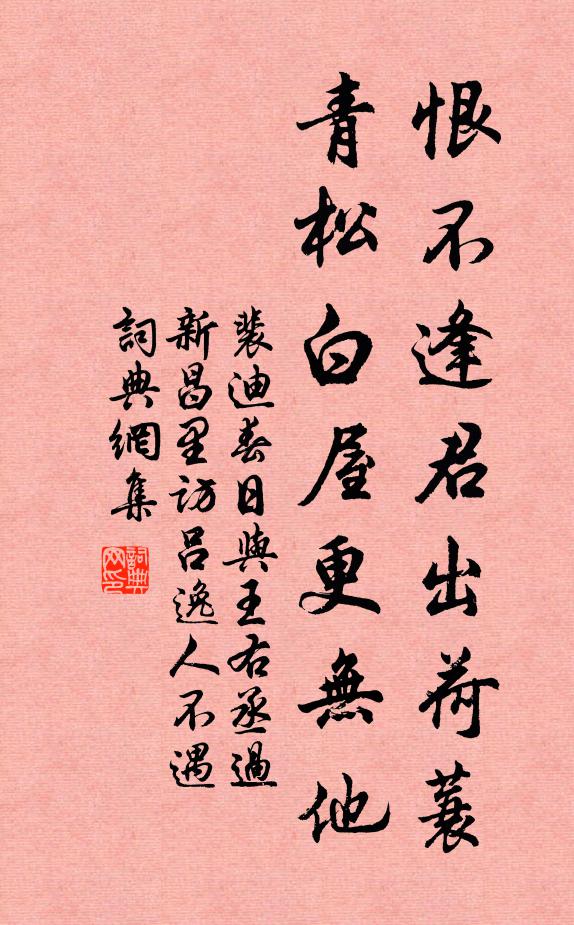 恨不逢君出荷蓑
青松白屋更無他
裴迪春日與王右丞過
新昌里訪呂逸人不遇
詞典網集
詞典网印